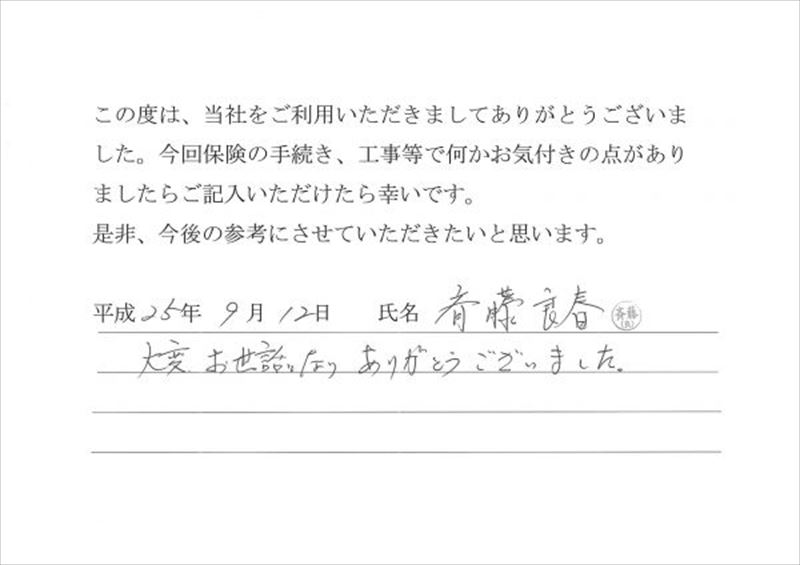 この度は、当社をご利用いただきましてありがとうございま
した。今回保険の手続き、工事等で何かお気付きの点があり
ましたらご記入いただけたら幸いです。
是非、今後の参考にさせていただきたいと思います。
平成25年 9月 12日 氏名 斉藤良春 斉藤
大変 お世話になり ありがとうございました。